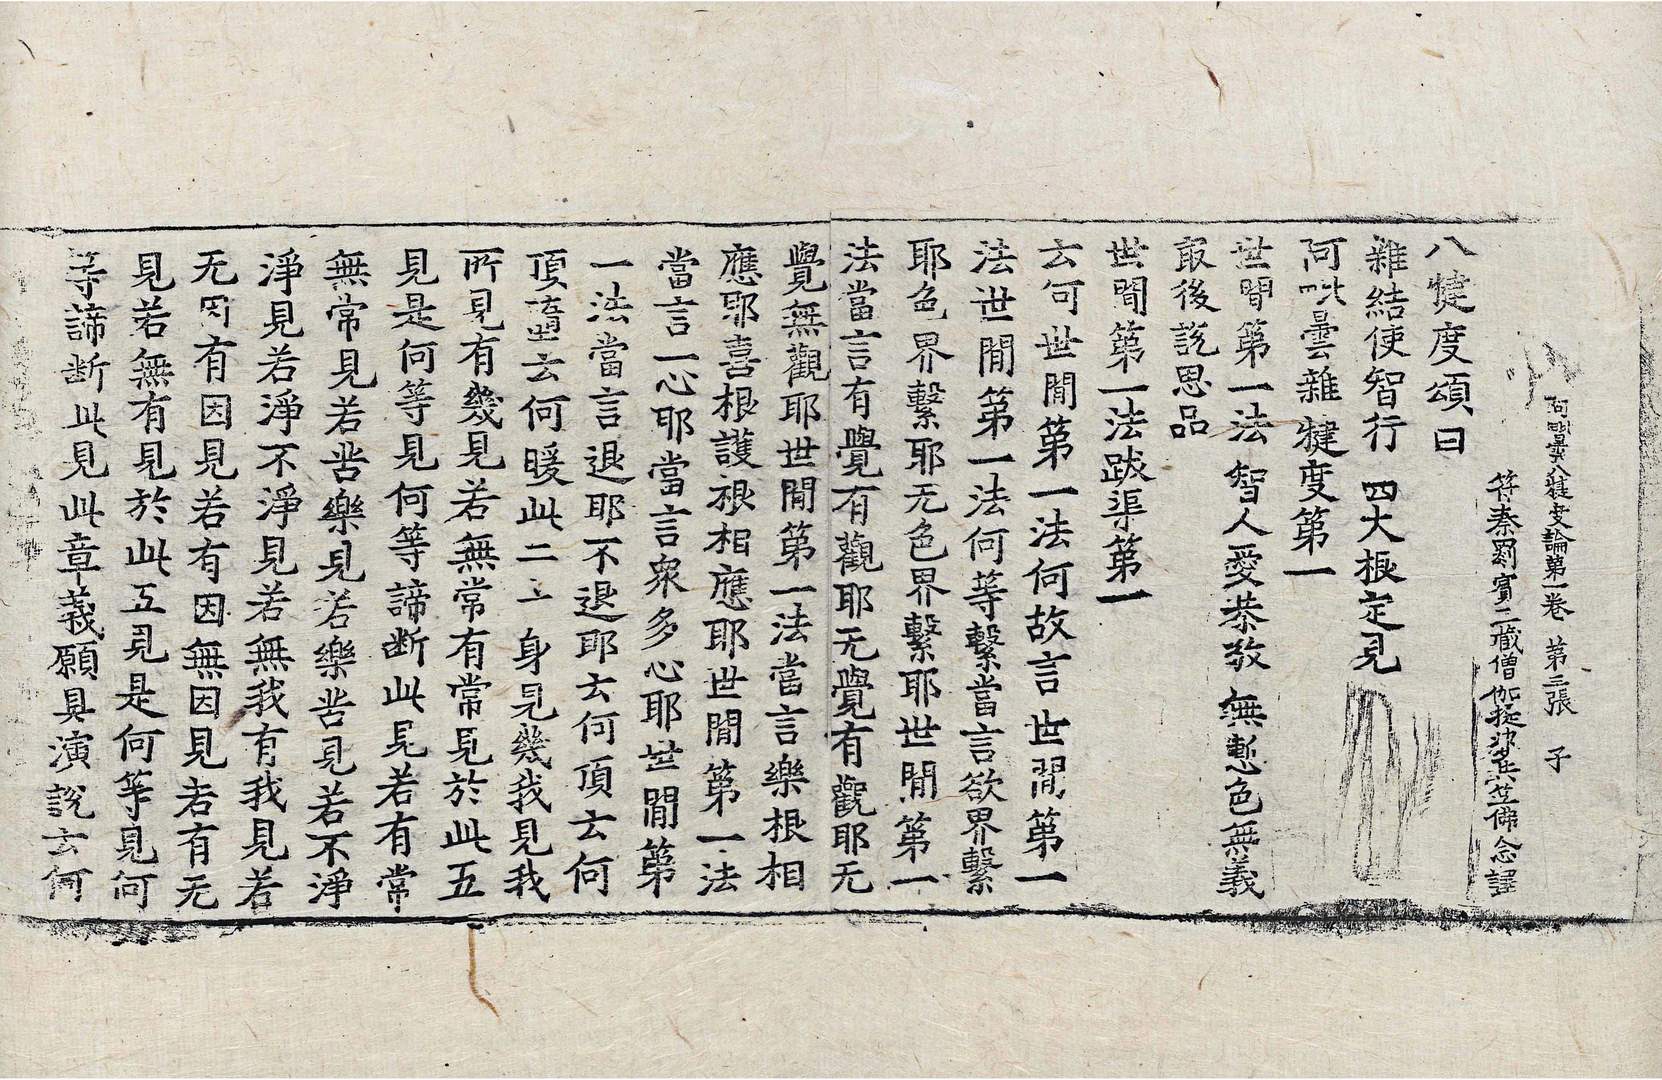 阿毗曇八犍度論第一卷 第二張 子
符秦罽賓三藏僧伽提婆共竺佛念譯
八犍度頌曰
雜結使智行 四大根定見
阿毗曇雜犍度第一
世閒第一法 智人愛恭敬 無慙色無義
㝡後說思品
世閒第一法跋渠第一
云何世閒第一法何故言世閒第一
法世閒第一法何等繫當言欲界繫
耶色界繫耶无色界繫耶世閒第一
法當言有覺有觀耶无覺有觀耶无
覺無觀耶世閒第一法當言樂根相
應耶喜根護根相應耶世閒第一法
當言一心耶當言衆多心耶世閒第
一法當言退耶不退耶云何頂云何
頂墮云何暖此二十身見幾我見我
所見有幾見若無常有常見於此五
見是何等見何等諦断此見若有常
無常見若苦樂見若樂苦見若不淨
淨見若淨不淨見若無我有我見若
无因有因見若有因無因見若有无
見若無有見於此五見是何等見何
等諦断此見此章義願具演說云何